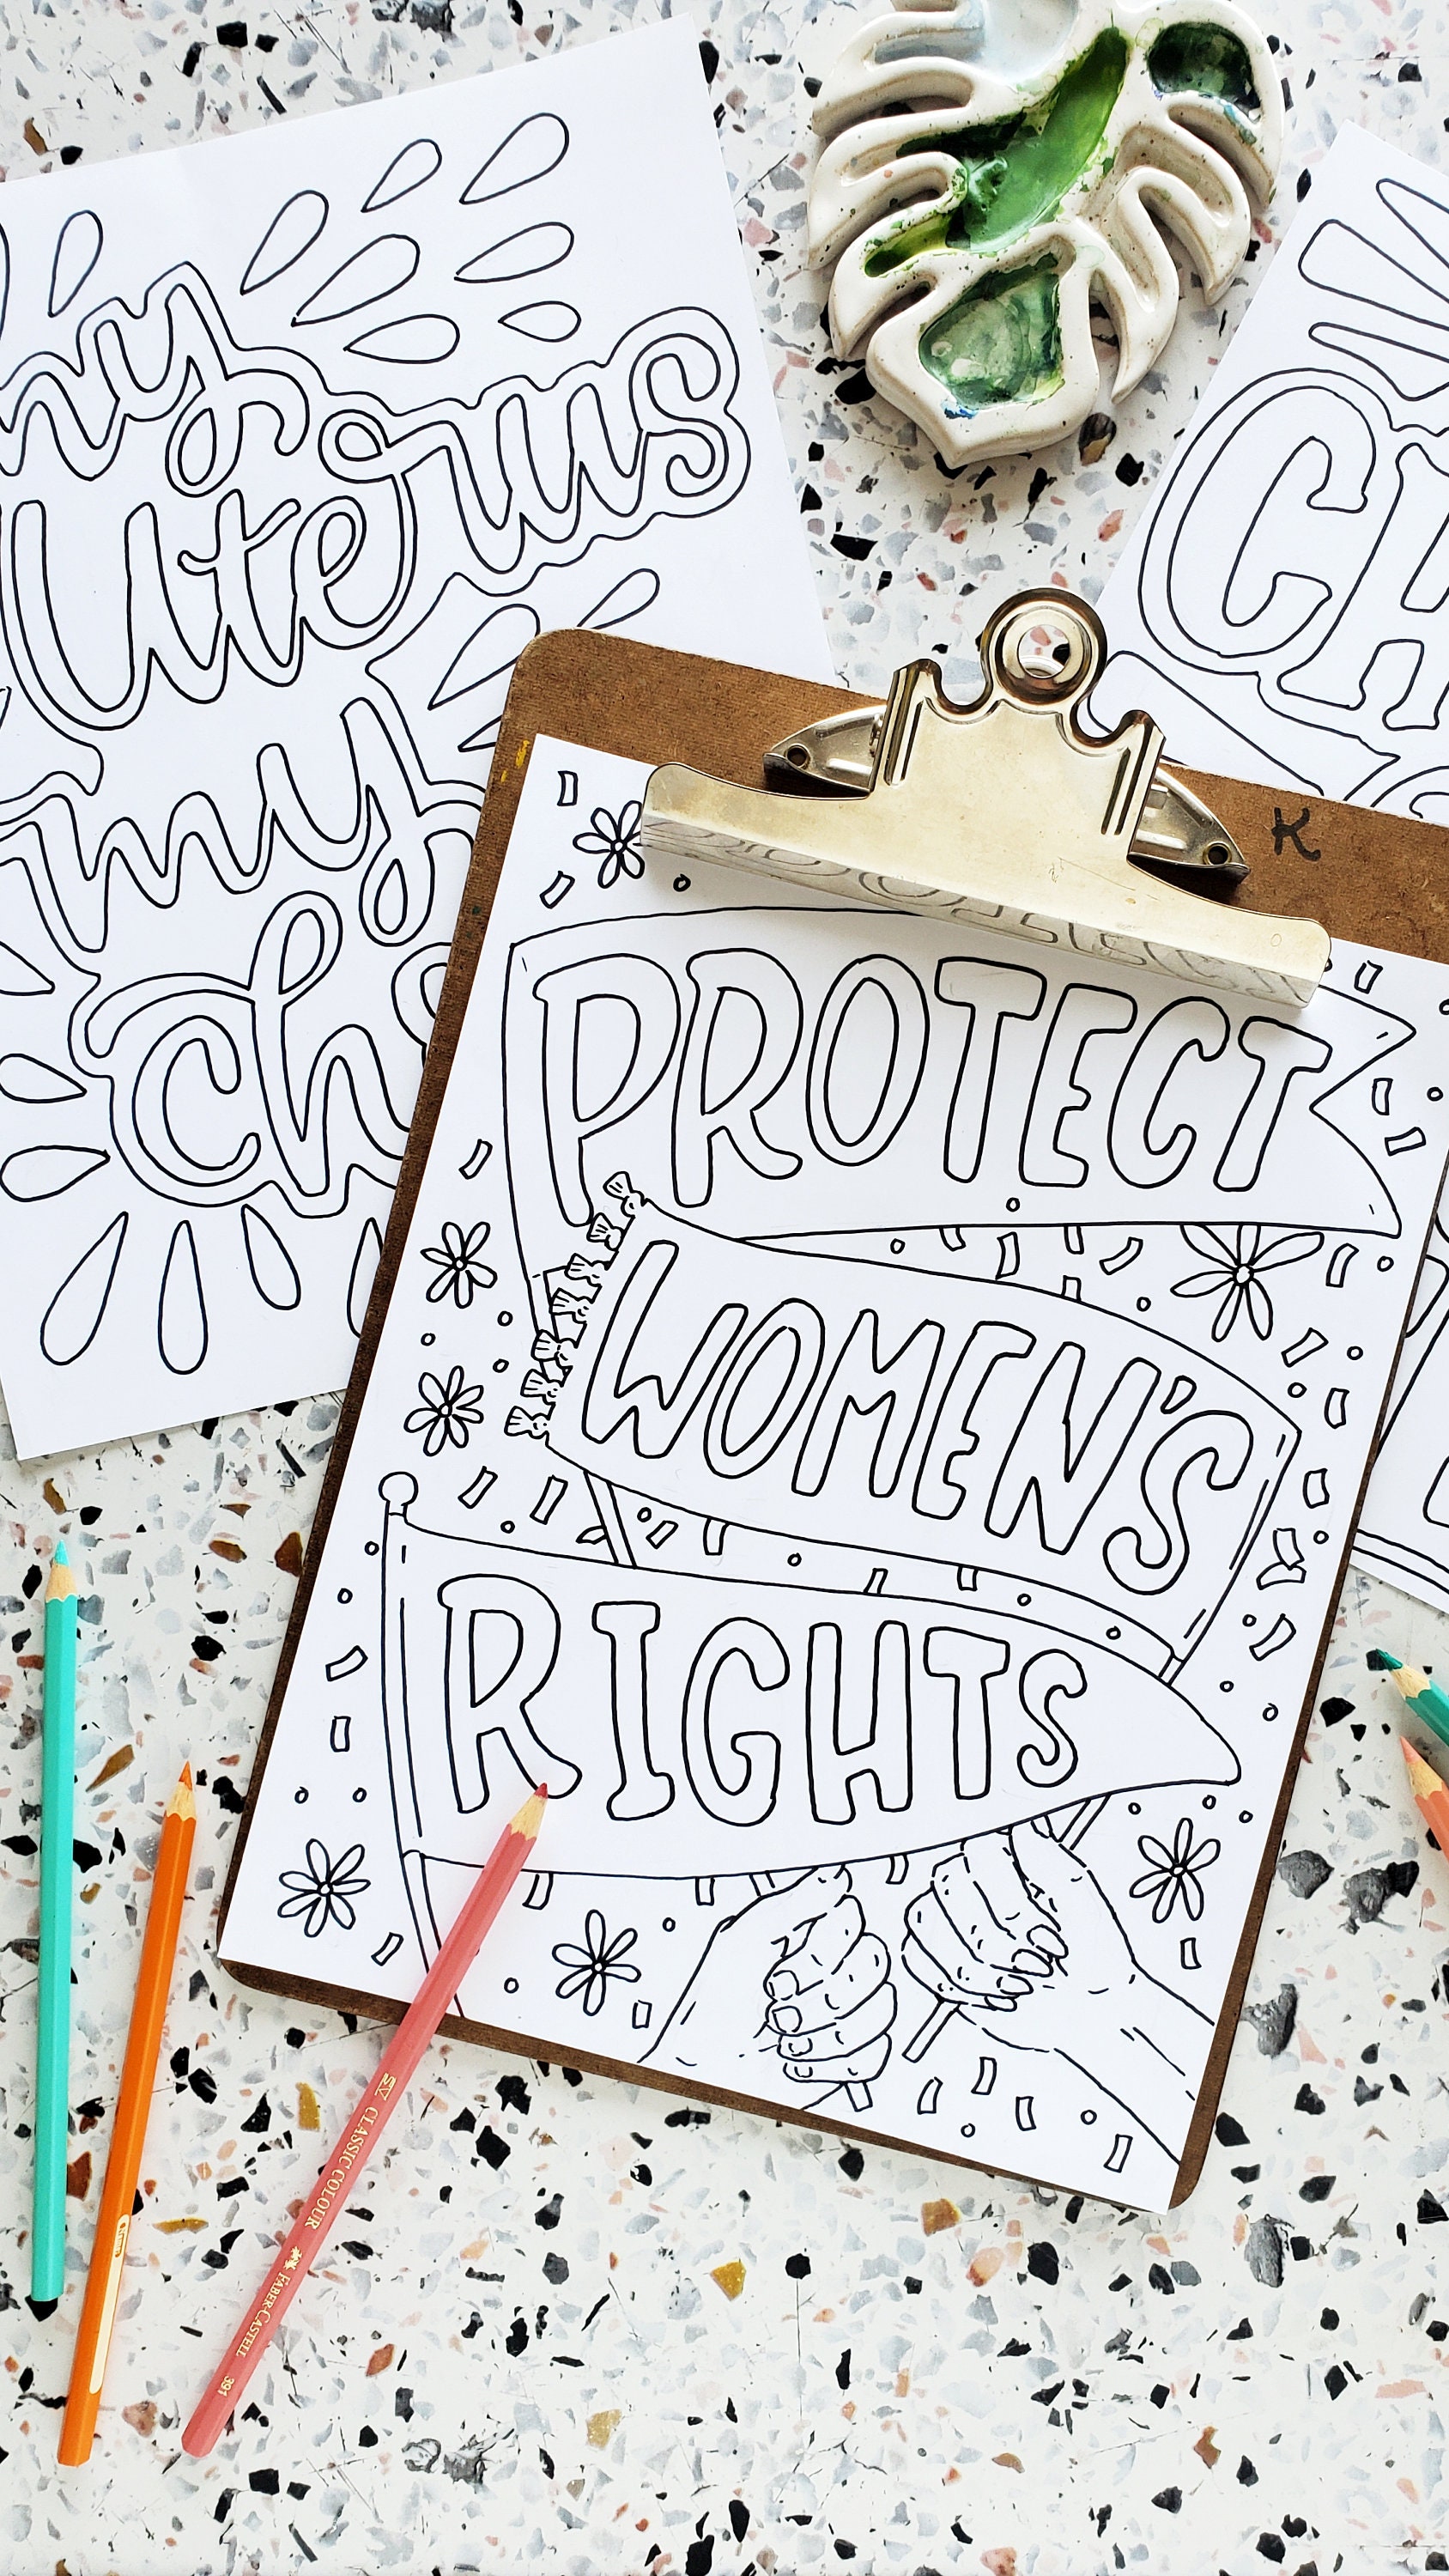 my
uterus
my
CH
K
PROTECT
WOMEN'S
RIGHTS
CLASSIC COLOUR FABER-CASTELL 391